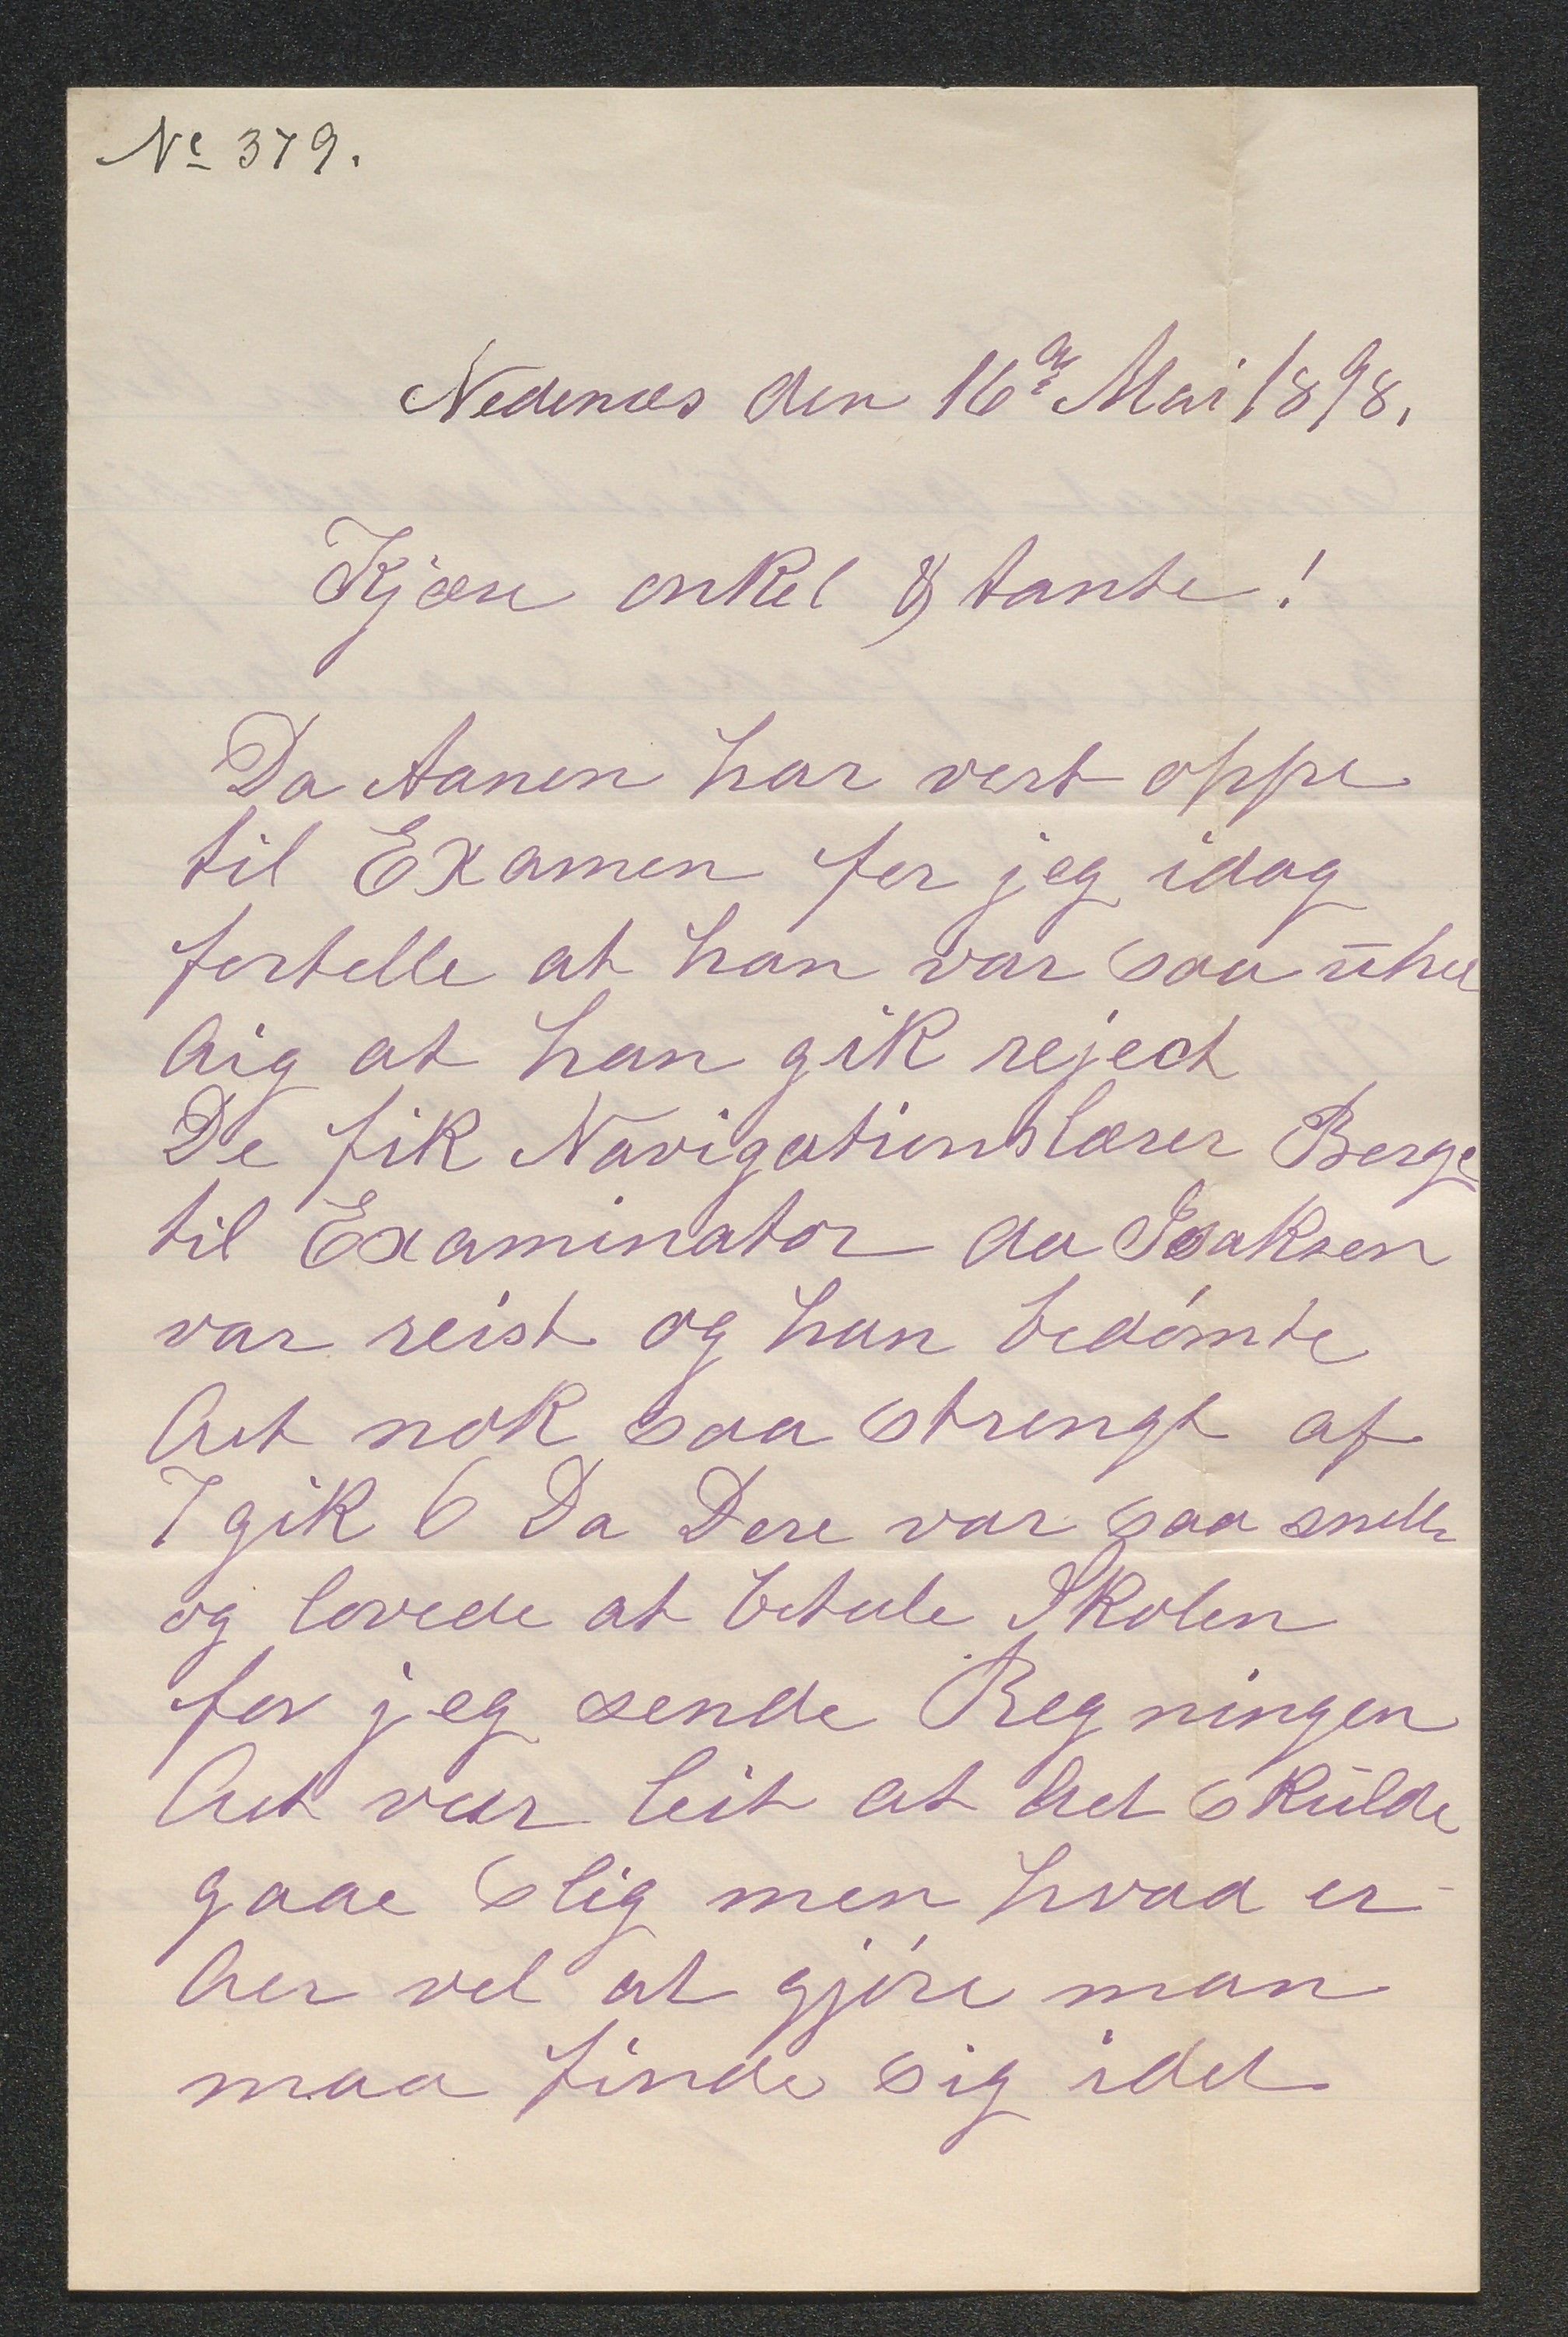 No 379.
Nedenæs den 16de Mai 1898.
Kjære onkel & tante!
Da Aanen har vert oppe
til Examen for jeg idag
fortelle at han var saa uhel
dig at han gik reject
De fik Navigationslærer Berge
til Examinator da Isaksen
var reist og han bedømte
det nok saa strengt af
7 gik 6 Da Dere var saa snille
og lovede at betale Skolen
for jeg sende Regningen
det var leit at det skulde
gaae slig men hvad er
der vel at gjøre man
maa finde sig idet